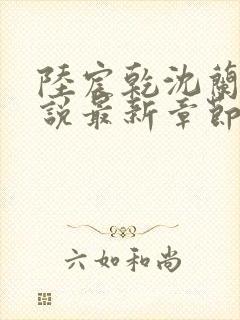 陸宸乾沈蘭
說最新章節
六如和尚